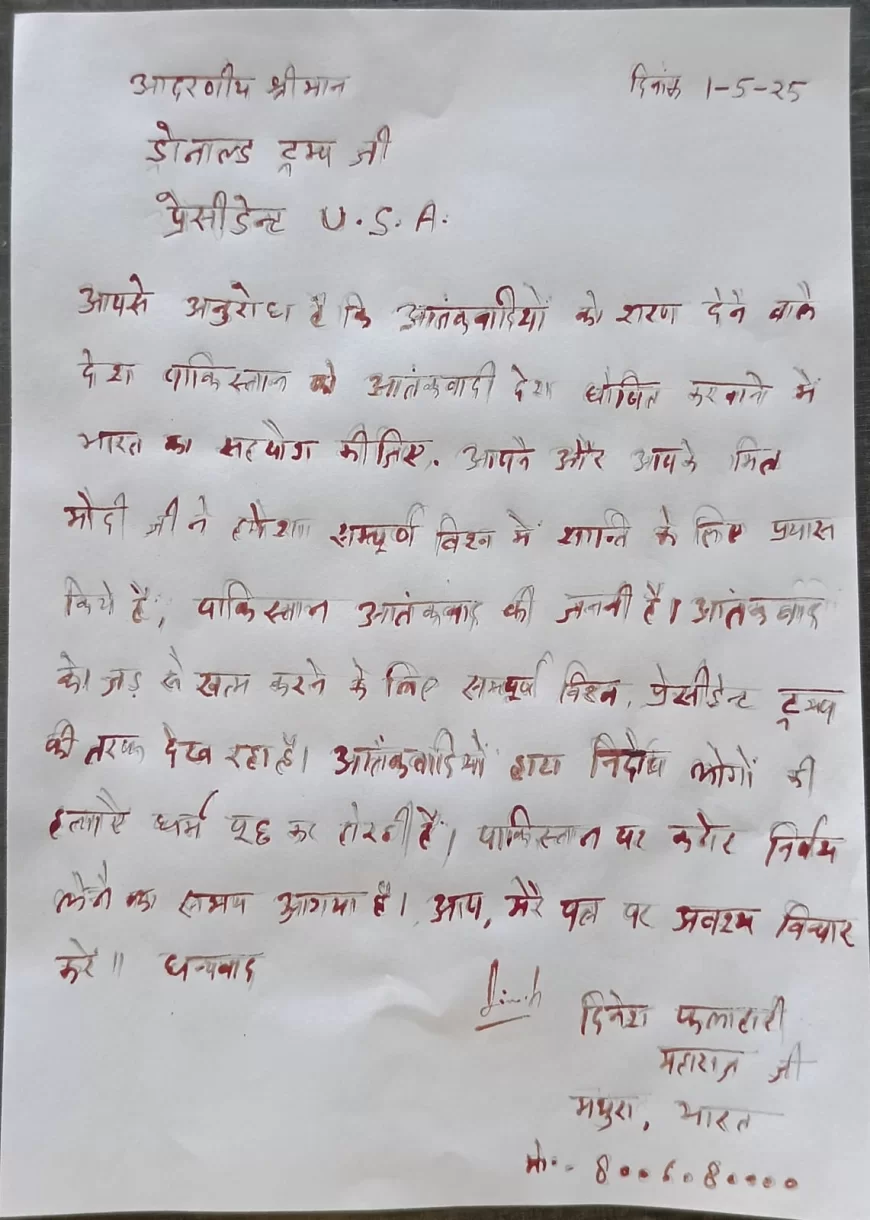 आदरणीय श्रीमान दिनांक 1-5-25
ड्रोनाल्ड ट्रम्प जी
प्रेसीडेन्ट U.S.A.
आपसे अनुरोध है कि आतंकवादियों को शरण देनै वाले
देश पाकिस्तान को आतंकवादी देश घोषित करवाने में
भारत का सहयोग कीजिए. आपने और आपके मित्र
मोदी जी ने हमेशा सम्पूर्ण विश्व में शान्ति के लिए प्रयास
किये है, पाकिस्तान आतंकवाद की जननी है। आतंकवाद
को जड़ से खत्म करने के लिए सम्पूर्ण विश्व, प्रेसीडेन्ट ट्रम्प
की तरफ देख रहा है। आतंकवादियों द्वारा निर्दोष लोगों की
हत्याऐ धर्म पूछ कर हो रही हैं। पाकिस्तान पर कठोर निर्णय
लेने का समय आगया है। आप, मेरे पत्र पर अवश्य विचार
करे॥ धन्यवाद
दिनेश फलाहारी
महाराज जी
मथुरा, भारत
मो:- 8००6०8००००